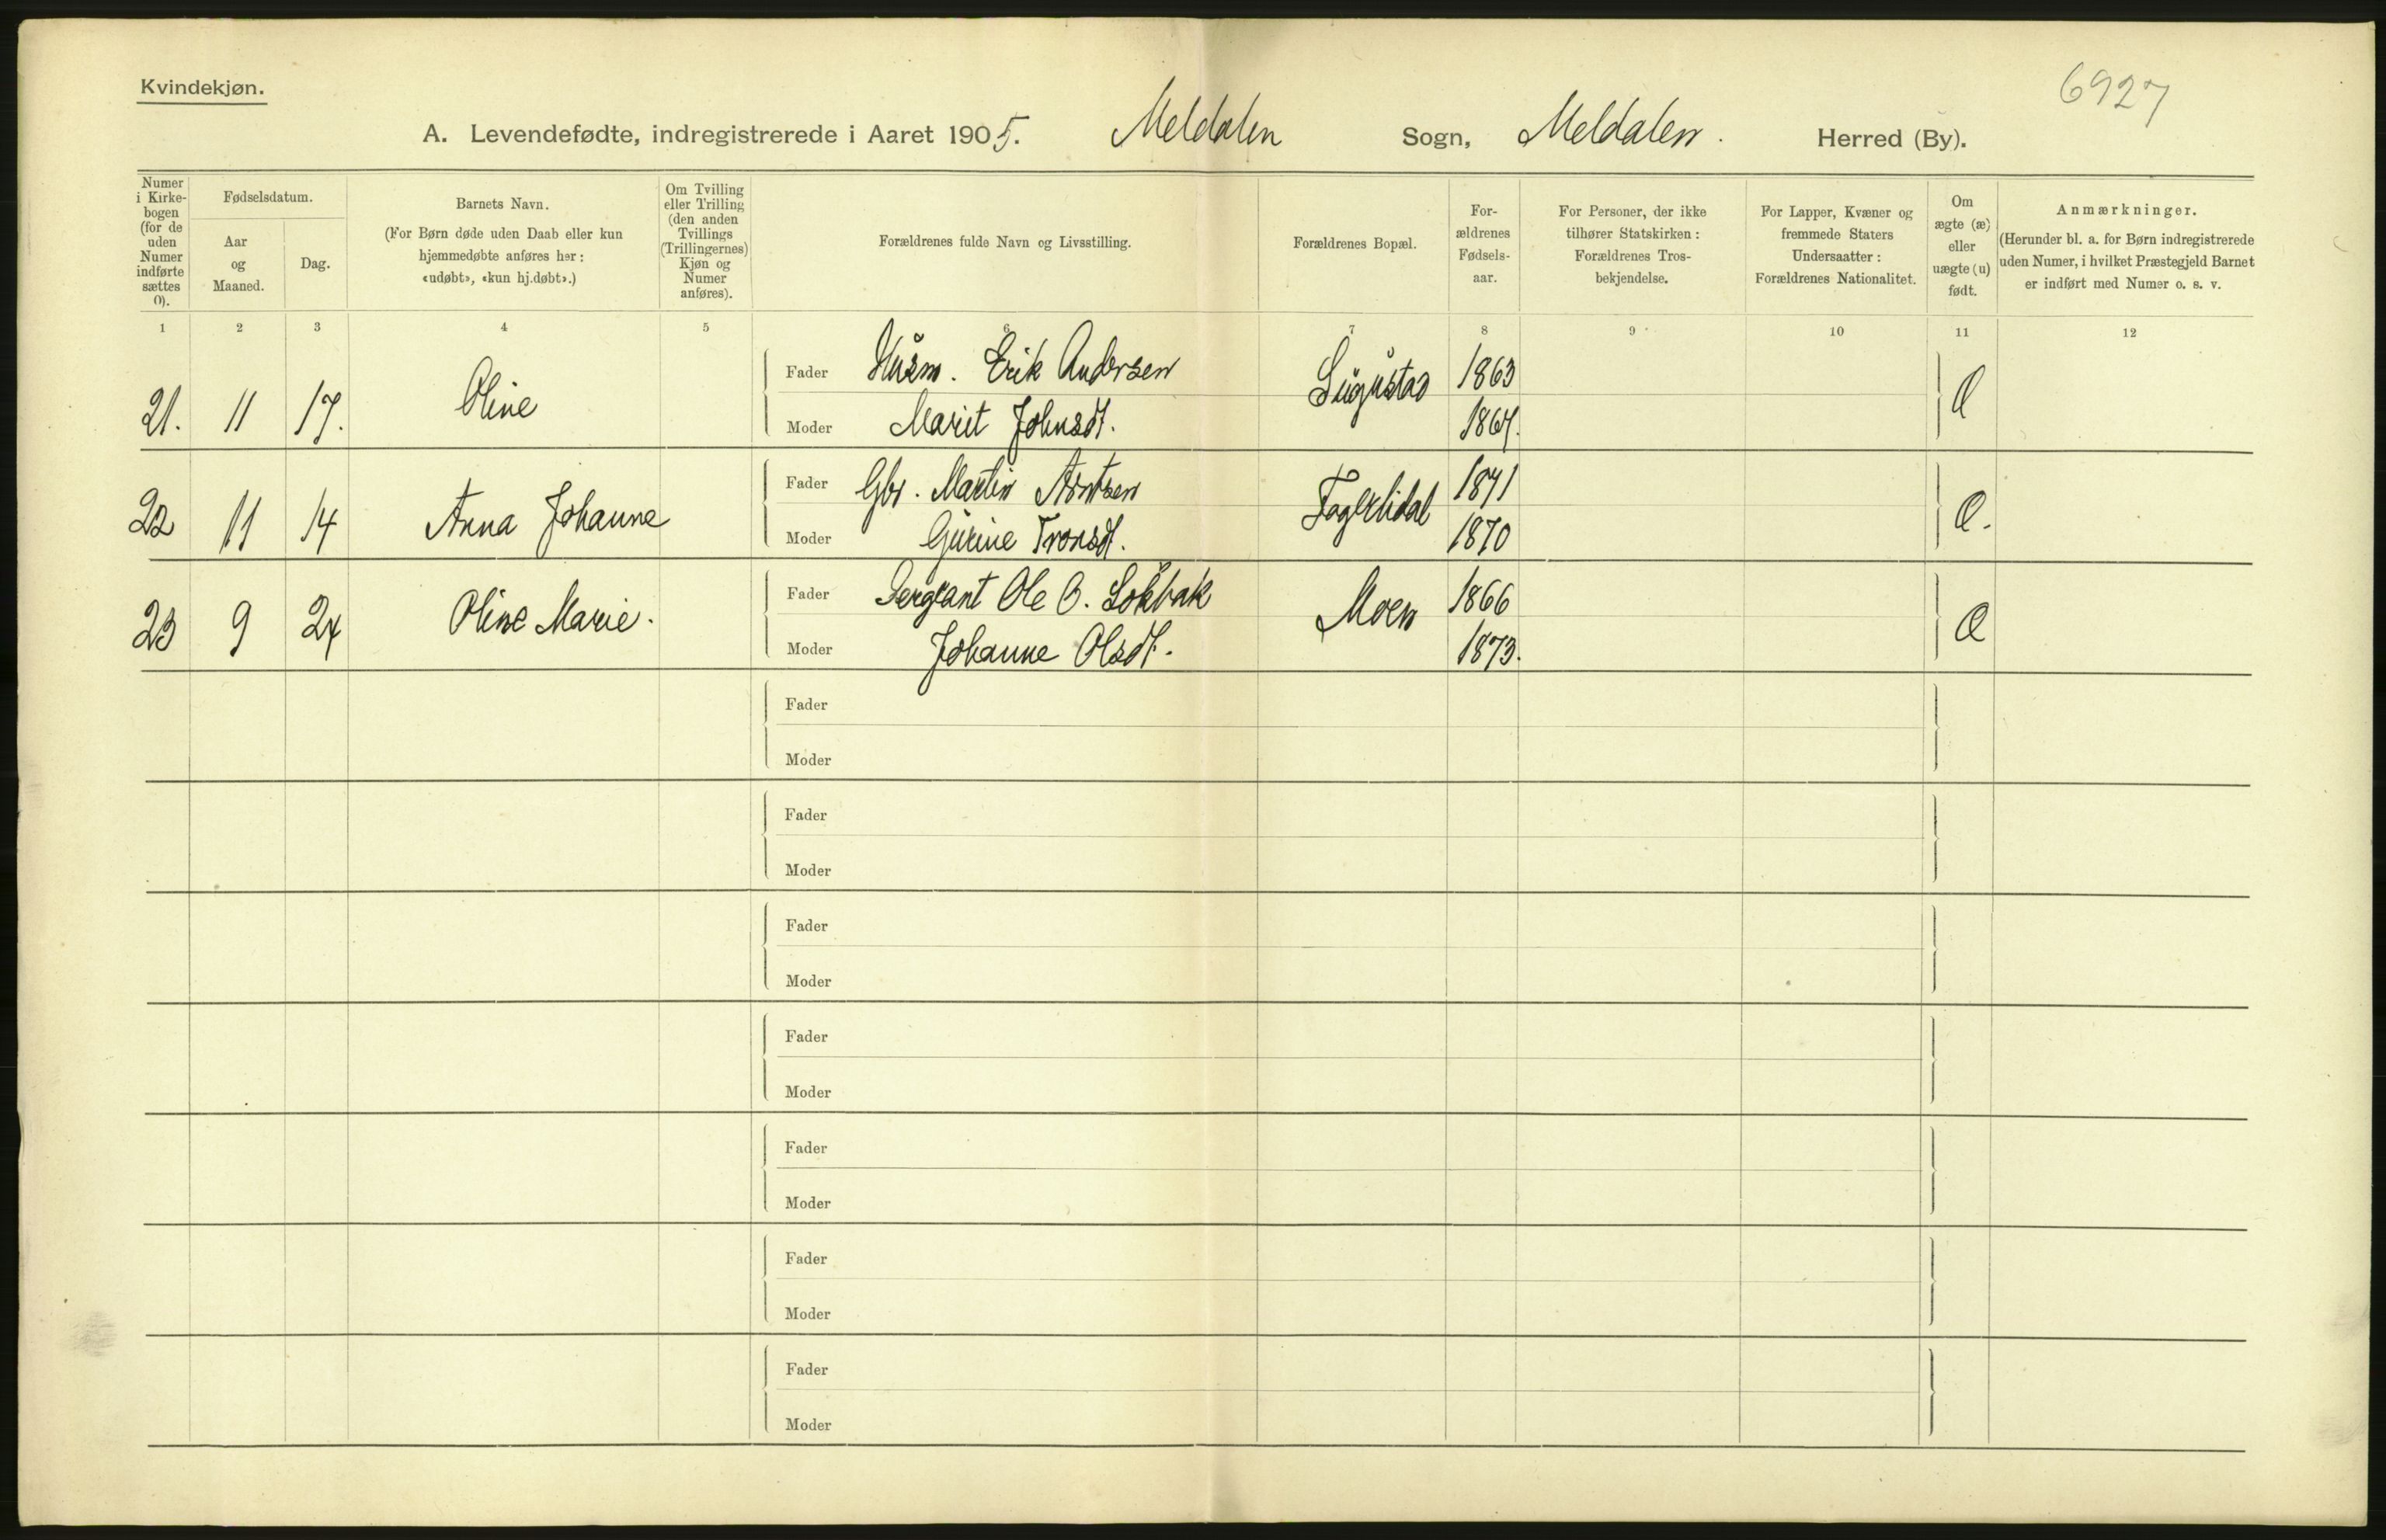 Kvindekjøn.
6927
A. Levendefødte, indregistrerede i Aaret 1905. Meldalen Sogn, Meldalen. Herred (By).
Numer i Kirke-bogen (for de uden Numer indførte sættes 0).
Fødselsdatum.
Aar og Maaned.
Dag.
Barnets Navn.
(For Børn døde uden Daab eller kun
hjemmedøbte anføres her:
«udøbt», «kun hj.døbt».)
Om Tvilling
eller Trilling
(den anden
Tvillings
(Trillingernes)
Kjøn og
Numer
anføres).
Forældrenes fulde Navn og Livsstilling.
Forældrenes Bopæl.
For-
ældrenes
Fødsels-
aar.
For Personer, der ikke
tilhører Statskirken:
Forældrenes Tros-
bekjendelse.
For Lapper, Kvæner og
fremmede Staters
Undersaatter:
Forældrenes Nationalitet.
Om
ægte (æ)
eller
uægte (u)
født.
Anmærkninger.
(Herunder bl. a. for Børn indregistrerede
uden Numer, i hvilket Præstegjeld Barnet
er indført med Numer o. s. v.
1 2 3 4 5 6 7 8 9 10 11 12
21. 11 17. Oline Fader Husm. Erik Andersen 1863
Moder Marit Johnsdt.
22 11 14 Anna Johanne Fader Gbr. Martin Arntsen 1871
Moder Gurine Tronsdt. 1870
23 9 24 Oline Marie. Fader Sergeant Ole O. Løkbak Moen 1866
Moder Johanne Olsdt. 1873.
Fader
Moder
Fader
Moder
Fader
Moder
Fader
Moder
Fader
Moder
Fader
Moder
Fader
Moder